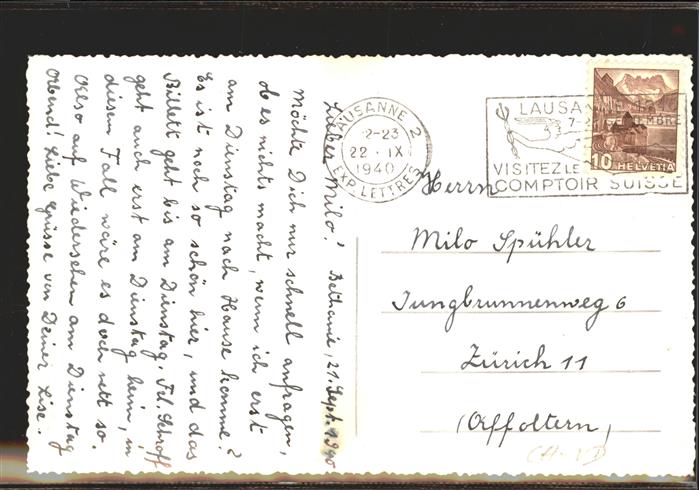 Bethanie, 21. Sept. 1940
Lieber Milo!
Möchte Dich nur schnell anfragen,
ob es nichts macht, wenn ich erst
am Dienstag nach Hause komme?
Es ist noch so schön hier, und das
Billett geht bis am Dienstag. Frl. Schroff
geht auch erst am Dienstag heim, in
diesem Fall wäre es doch nett so.
Also auf Wiedersehen am Dienstag
Abend! Liebe Grüsse von Deiner Lise.
LAUSANNE 2
22-23
22. IX
1940
EXP. LETTRES
LAUSANNE
VISITEZ LE
COMPTOIR SUISSE
10 HELVETIA
Herrn
Milo Spühler
Jungbrunnenweg 6
Zürich 11
(Affoltern)
CH-VD